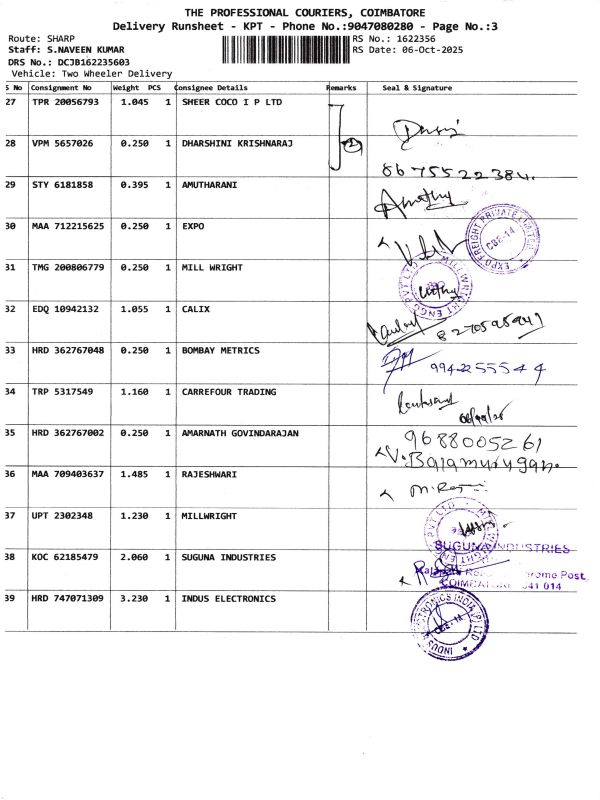 THE PROFESSIONAL COURIERS, COIMBATORE
Delivery Runsheet - KPT - Phone No.:9047080280 - Page No.:3
Route: SHARP RS No.: 1622356
Staff: S.NAVEEN KUMAR RS Date: 06-Oct-2025
DRS No.: DCJB162235603
Vehicle: Two Wheeler Delivery
S No Consignment No Weight PCS Consignee Details Remarks Seal & Signature
27 TPR 20056793 1.045 1 SHEER COCO I P LTD
28 VPM 5657026 0.250 1 DHARSHINI KRISHNARAJ
8675522384.
29 STY 6181858 0.395 1 AMUTHARANI
30 MAA 712215625 0.250 1 EXPO
EXPO FREIGHT PRIVATE LIMITED CBE-14
31 TMG 200806779 0.250 1 MILL WRIGHT
MILLWRIGHT ENGG PVT LTD
32 EDQ 10942132 1.055 1 CALIX
33 HRD 362767048 0.250 1 BOMBAY METRICS
9942255544
34 TRP 5317549 1.160 1 CARREFOUR TRADING
35 HRD 362767002 0.250 1 AMARNATH GOVINDARAJAN
9688005261
V. Balamurugan.
36 MAA 709403637 1.485 1 RAJESHWARI
37 UPT 2302348 1.230 1 MILLWRIGHT
MILLWRIGHT ENGG PVT LTD
38 KOC 62185479 2.060 1 SUGUNA INDUSTRIES
SUGUNA INDUSTRIES
Post,
COIMBATORE 641 014
39 HRD 747071309 3.230 1 INDUS ELECTRONICS
INDUS ELECTRONICS INDIA (P) LTD CBE-14